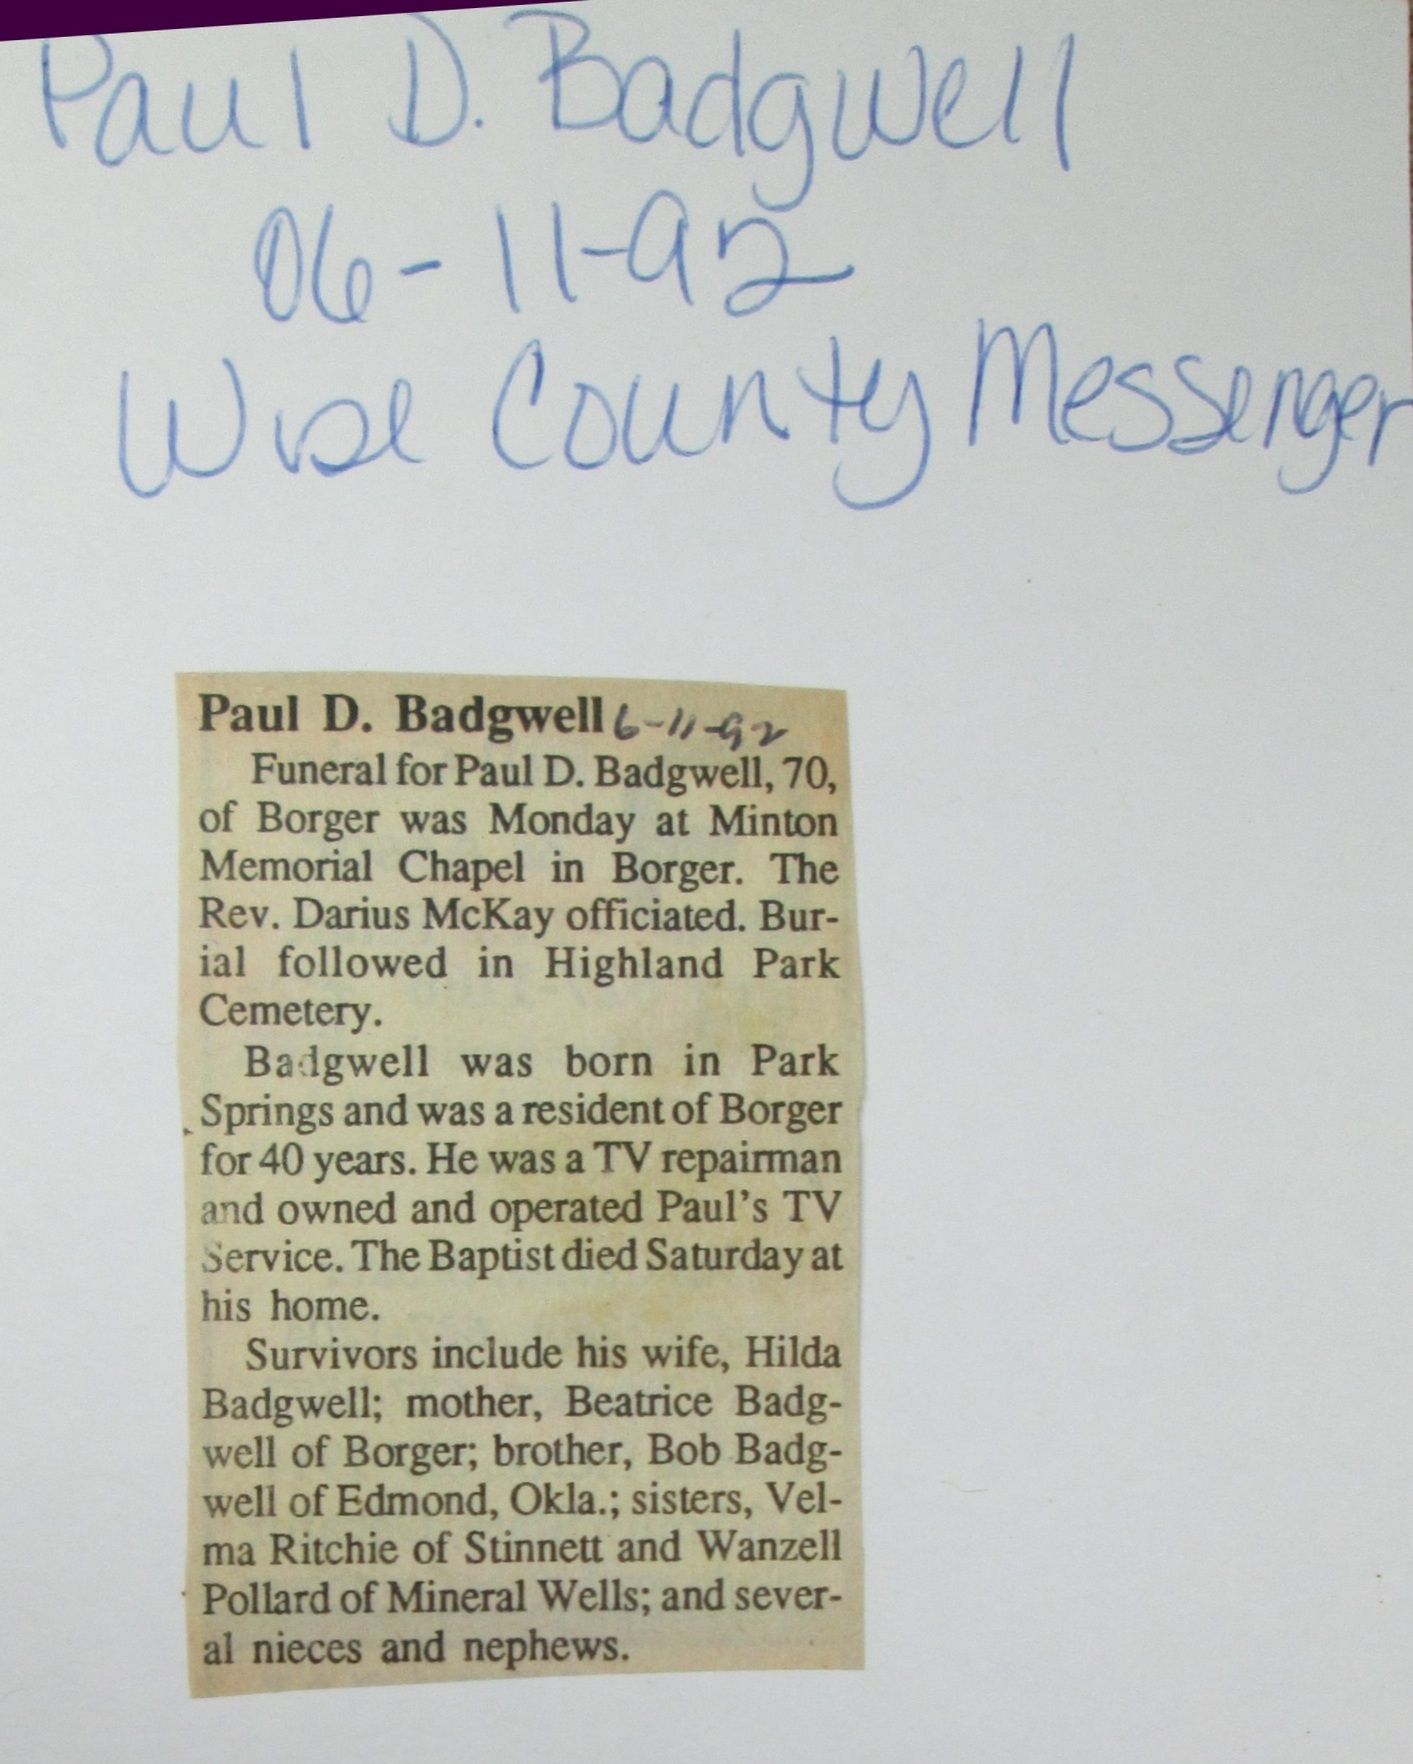 Paul D. Badgwell
06-11-92
Wise County Messenger
Paul D. Badgwell 6-11-92
Funeral for Paul D. Badgwell, 70,
of Borger was Monday at Minton
Memorial Chapel in Borger. The
Rev. Darius McKay officiated. Bur-
ial followed in Highland Park
Cemetery.
Badgwell was born in Park
Springs and was a resident of Borger
for 40 years. He was a TV repairman
and owned and operated Paul's TV
Service. The Baptist died Saturday at
his home.
Survivors include his wife, Hilda
Badgwell; mother, Beatrice Badg-
well of Borger; brother, Bob Badg-
well of Edmond, Okla.; sisters, Vel-
ma Ritchie of Stinnett and Wanzell
Pollard of Mineral Wells; and sever-
al nieces and nephews.